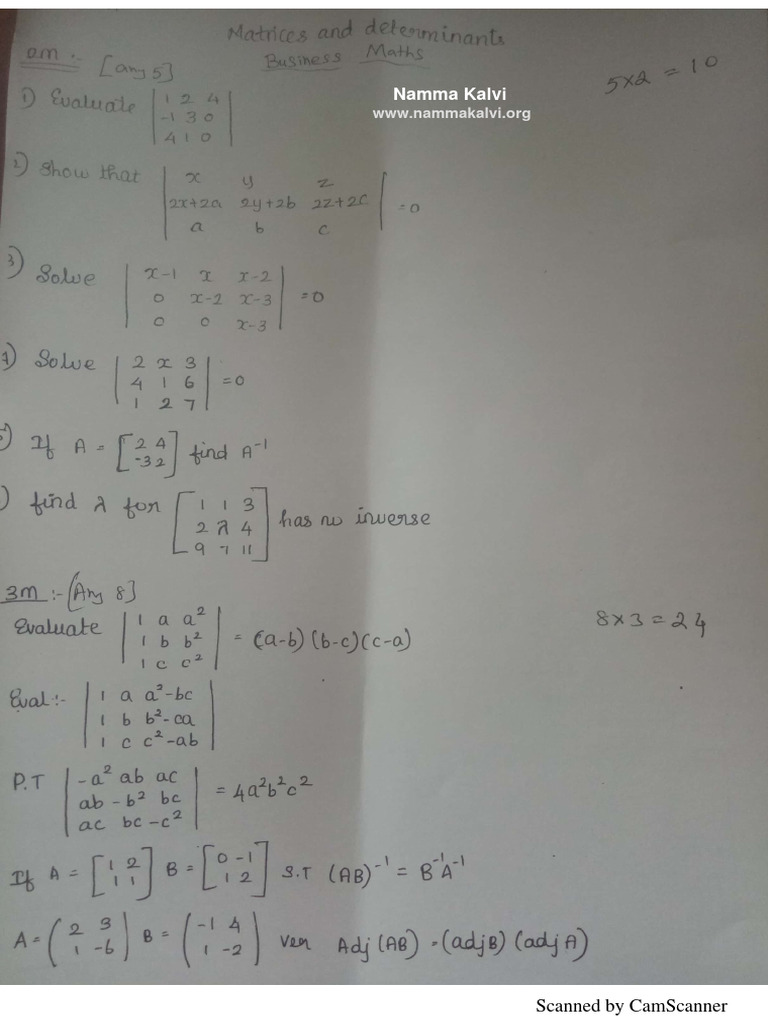 Matrices and determinants
Business Maths
2m :- [any 5]
5x2 = 10
Namma Kalvi
www.nammakalvi.org
1) Evaluate | 1 2 4 |
| -1 3 0 |
| 4 1 0 |
2) Show that | x y z |
| 2x+2a 2y+2b 2z+2c | =0
| a b c |
3) Solve | x-1 x x-2 |
| 0 x-2 x-3 | =0
| 0 0 x-3 |
4) Solve | 2 x 3 |
| 4 1 6 | =0
| 1 2 7 |
5) If A = [ 2 4 ] find A⁻¹
[ -3 2 ]
) find λ for [ 1 1 3 ]
[ 2 λ 4 ] has no inverse
[ 9 7 11 ]
3m :- [Any 8]
8x3 = 24
Evaluate | 1 a a² |
| 1 b b² | = (a-b) (b-c)(c-a)
| 1 c c² |
Eval :- | 1 a a²-bc |
| 1 b b²-ca |
| 1 c c²-ab |
P.T | -a² ab ac |
| ab -b² bc | = 4a²b²c²
| ac bc -c² |
If A = [ 1 2 ] B = [ 0 -1 ] S.T (AB)⁻¹ = B⁻¹A⁻¹
[ 1 1 ] [ 1 2 ]
A = ( 2 3 ) B = ( -1 4 ) ver Adj (AB) = (adj B) (adj A)
( 1 -6 ) ( 1 -2 )
Scanned by CamScanner